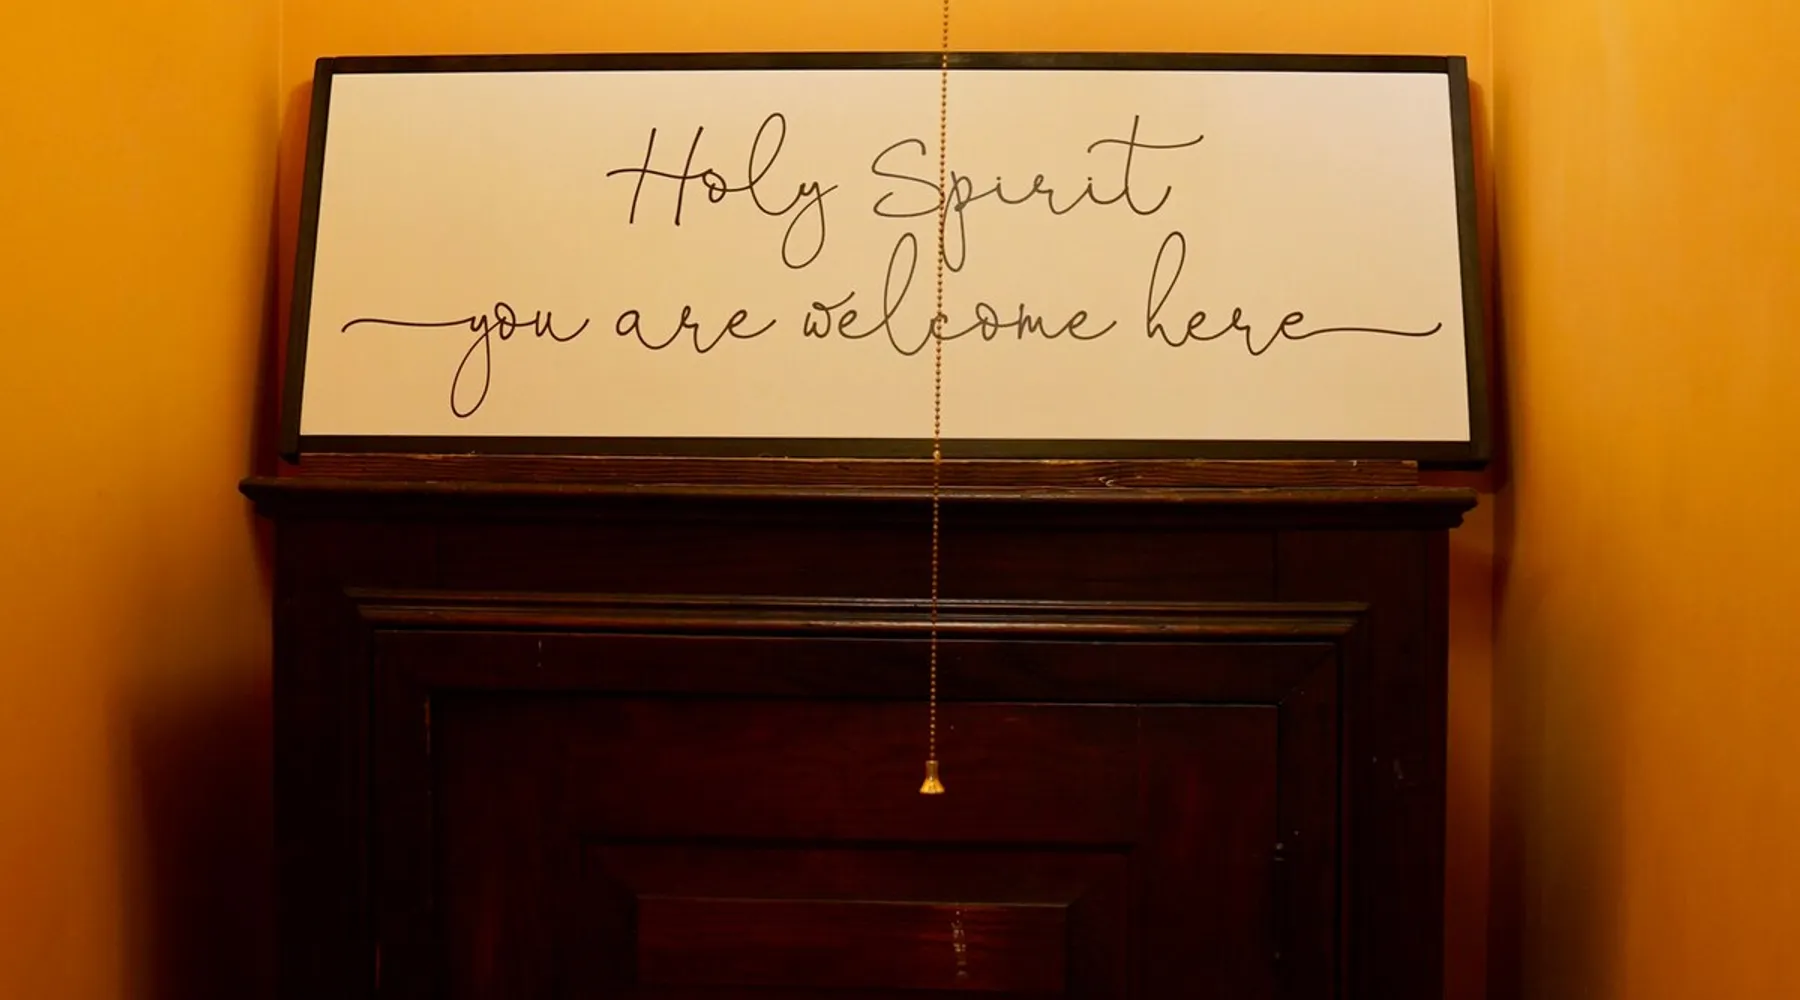 Holy Spirit
you are welcome here